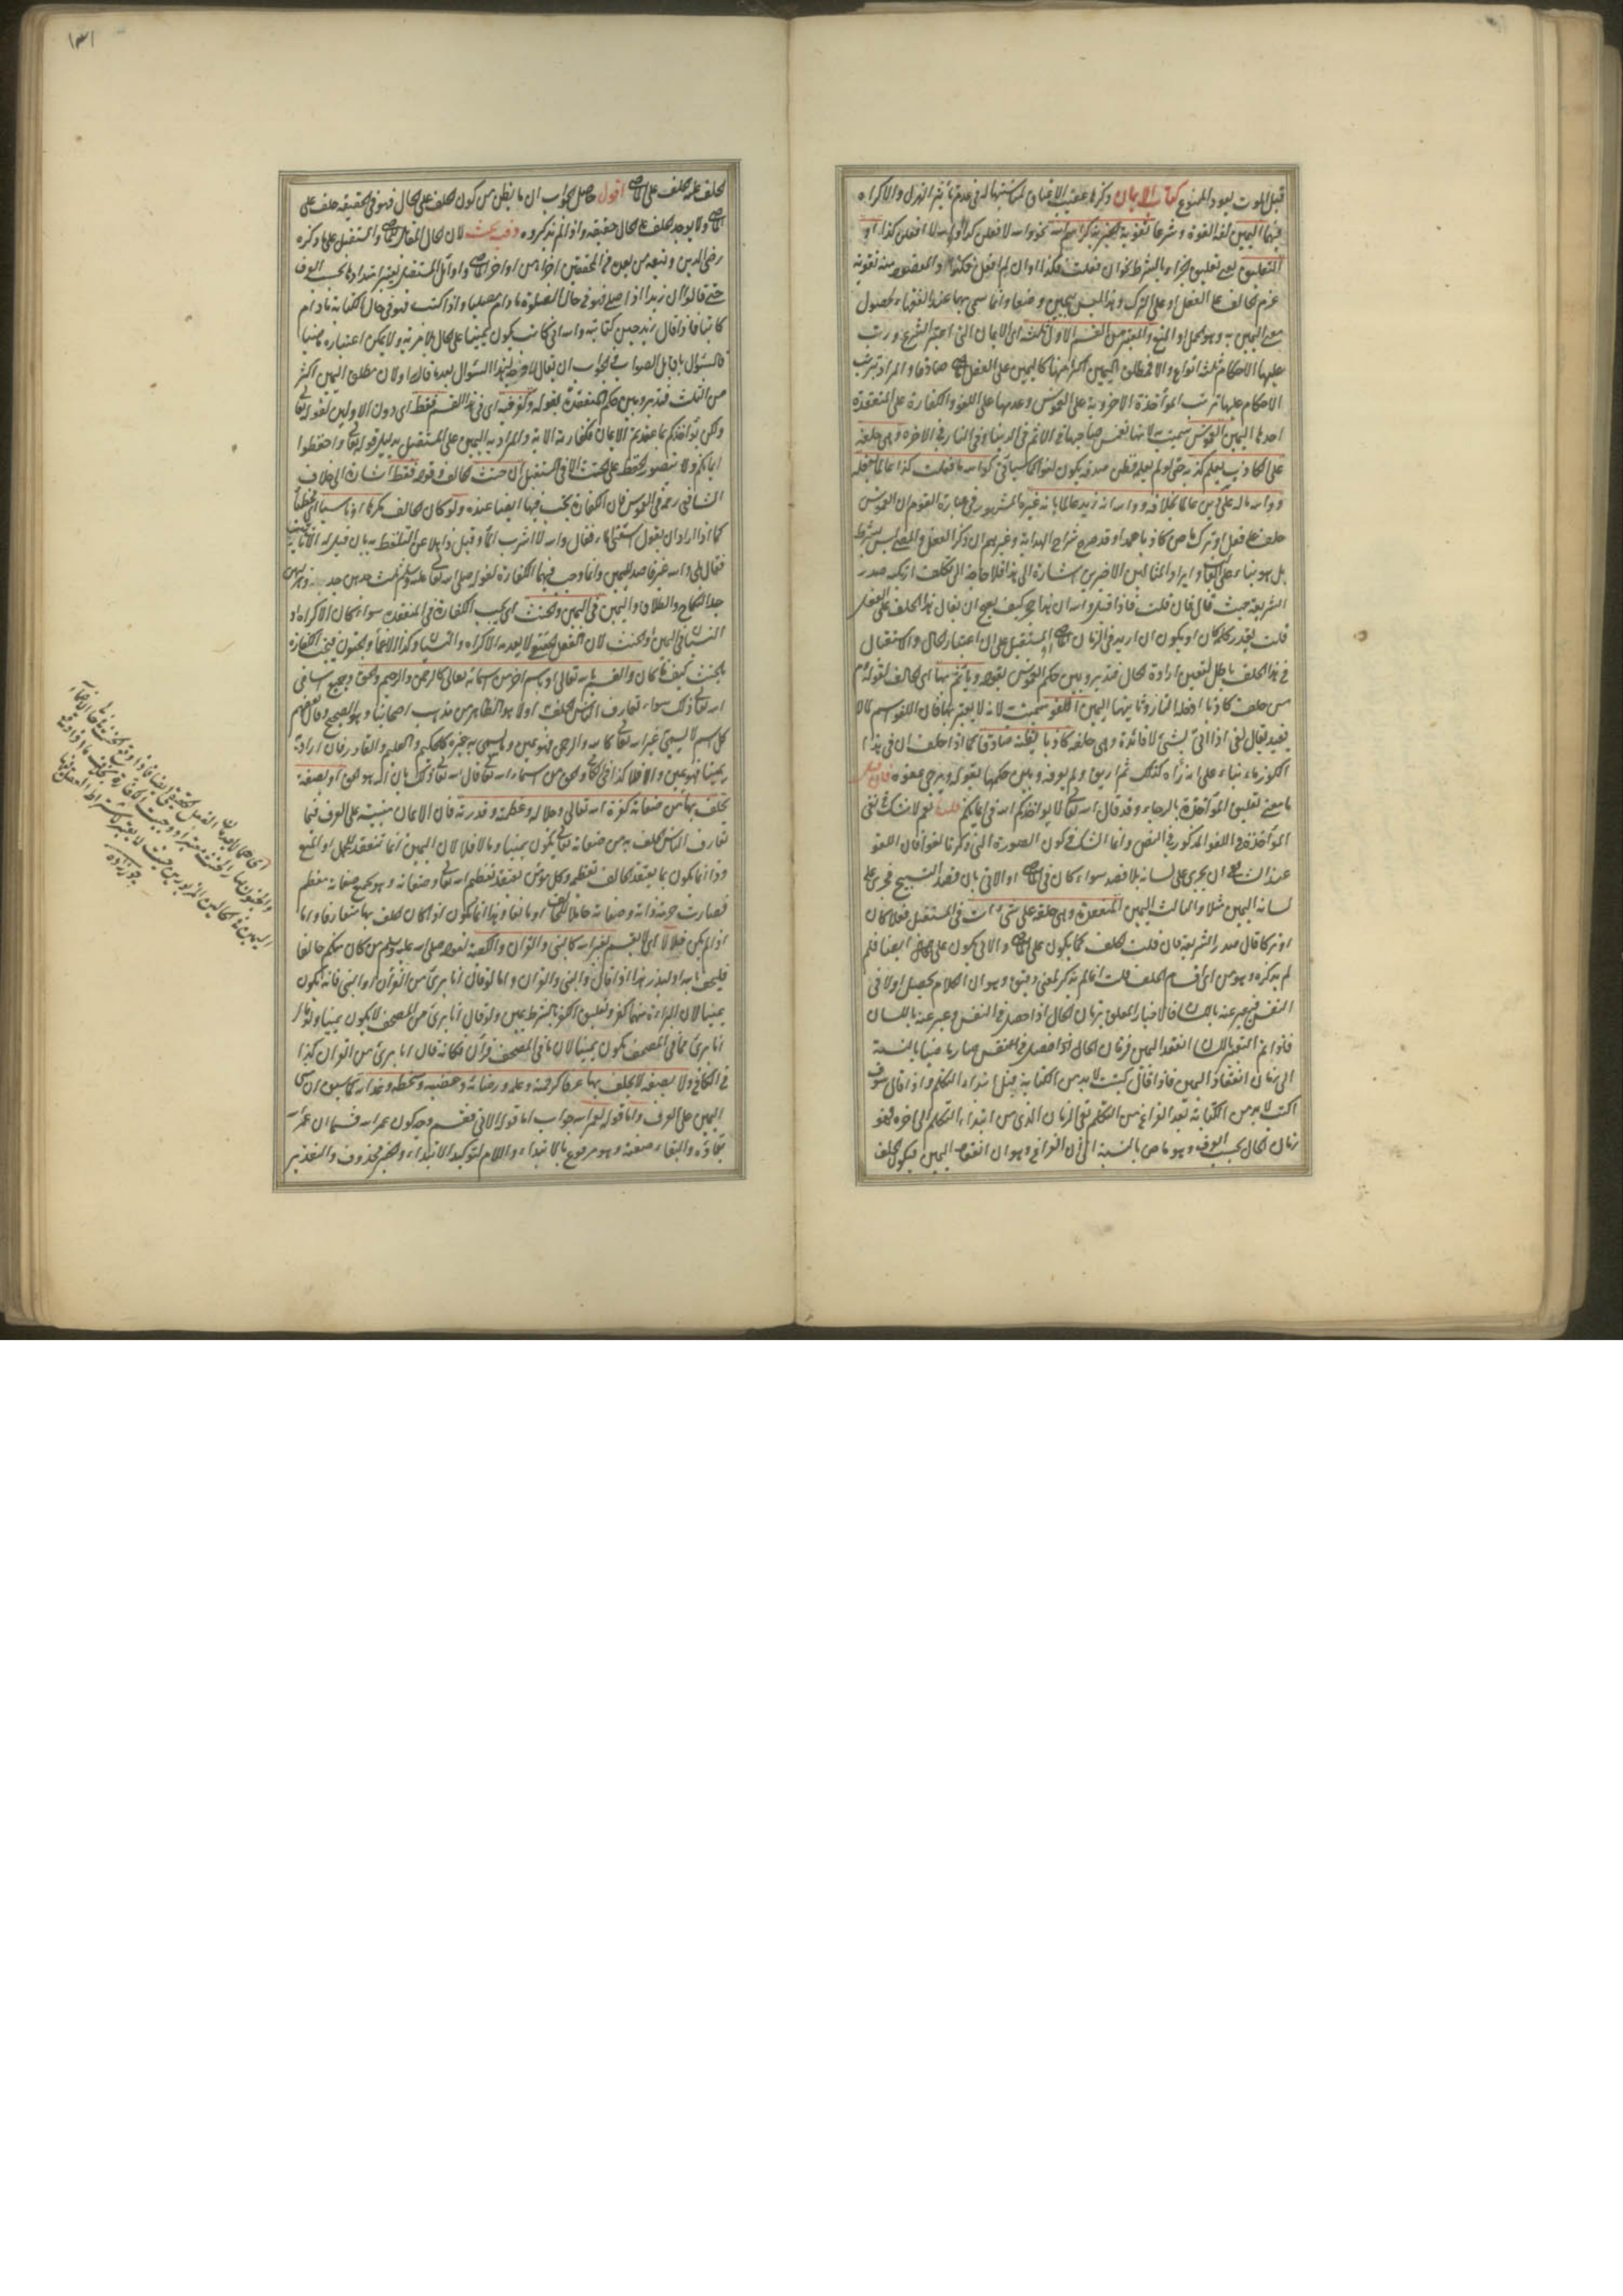 قبل الموت يعود الممنوع كتاب الايمان ذكرها عقيب الاعتاق لمناسبتها له في عدم تأثير الهزل والاكراه
فيهما اليمين لغة القوة وشرعا تقوية الخبر بذكر اسم الله نحو والله لافعلن كذا او والله لا افعلن كذا او
التعليق يعني تعليق الجزاء بالشرط نحو ان فعلت فكذا او ان لم افعل فكذا والمقصود منه تقوية
عزم الحالف على الفعل او على الترك وهذا ليس بيمين وضعا وانما سمى بها عند الفقهاء لحصول
معنى اليمين به وهو الحمل او المنع والمعتبر من القسم الاول ثلثة اى الايمان التي اعتبر الشرع ورتب
عليها الاحكام ثلثة انواع والا فمطلق اليمين اكثر منها كاليمين على الفعل الماضى صادقا والمراد بترتب
الاحكام عليها ترتب المؤاخذة الاخروية على الغموس وعدمها على اللغو والكفارة على المنعقدة
احدها اليمين الغموس سميت به لانها تغمس صاحبها في الاثم في الدنيا وفي النار في الاخرة وهى حلفه
على الكاذب يعلم كذبه حتى لو لم يعلم فظن صدقه يكون لغوا كما سيأتي كوالله ما فعلت كذا عالما بفعله
ووالله ما له على دين عالما بخلافه ووالله انه زيد عالما بانه غيره المشهور في عبارة القوم ان الغموس
حلف على فعل او ترك ماض كاذبا عمدا وقد صرح شراح الهداية وغيرهم ان ذكر الفعل والمضى ليس بشرط
بل هو بناء على الغالب وايراد المثالين الاخيرين اشارة الى هذا فلا حاجة الى تكلف ارتكبه صدر
الشريعة حيث قال فان قلت فاذا قيل والله ان هذا حجر كيف يصح ان يقال هذا الحلف على الفعل
قلت يقدر كلمة كان او يكون ان اريد في الزمان الماضى او المستقبل على ان اعتبار الحال والاستقبال
في هذا الحلف باطل لتعين ارادة الحال فتدبر وبين حكم الغموس بقوله ويأثم بها اى الحالف لقوله عم
من حلف كاذبا ادخله النار وثانيها اليمين اللغو سميت به لانه لا يعتبر بها فان اللغو اسم لما لا
يفيد يقال لغى اذا اتى بشئ لا فائدة وهى حلفه كاذبا يظنه صادقا كما اذا حلف ان في هذا
الكوز ماء بناء على انه رآه كذلك ثم اريق ولم يعرفه وبين حكمها بقوله ويرجى عفوه فان قيل
ما معنى تعليق المؤاخذة بالرجاء وقد قال الله تعالى لا يؤاخذكم الله في ايمانكم قلت نعم لا شك في نفي
المؤاخذة في اللغو المذكور في النص وانما الشك في كون الصورة التي ذكرنا لغوا فان اللغو
عند الشافعى ان يجرى على لسانه بلا قصد سواء كان في الماضى او الاتى بان قصد التسبيح فجرى على
لسانه اليمين مثلا والثالث اليمين المنعقدة وهى حلفه على شئ آت في المستقبل فعلا كان
او تركا قال صدر الشريعة فان قلت الحلف كما يكون على الماضى والاتى يكون على الحال ايضا فلم
لم يذكره وهو من اى اقسام الحلف قلت انما لم يذكر لمعنى دقيق وهو ان الكلام يحصل اولا في
النفس فيعبر عنه باللسان فالاخبار المعلق بزمان الحال اذا حصل في النفس فعبر عنه باللسان
فاذا تم التعبير باللسان انعقد اليمين فزمان الحال اذا حصل في النفس صار ماضيا بالنسبة
الى زمان انعقاد اليمين فاذا قال كتبت لا بد من الكتابة قبل ابتداء التكلم واذا قال سوف
اكتب لا بد من الكتابة بعد الفراغ من التكلم بقى الزمان الذي من ابتداء التكلم الى اخره فهو
زمان الحال بحسب العرف وهو ماض بالنسبة الى آن الفراغ وهو ان انعقاد اليمين فيكون الحلف
١٣١
الحلف عليه حلف على الماضى اقول حاصل الجواب ان ما يظن من كون الحلف على الحال فهو في الحقيقة حلف على
الماضى ولا يوجد الحلف على الحال حقيقة ولذا لم نذكروه وفيه بحث لان الحال المقابل للماضى والمستقبل على ما ذكره
رضى الدين وتبعه من بعده من المحققين اجزاء من اواخر الماضى واوائل المستقبل يعتبر امتدادها بحسب العرف
حتى قالوا ان زيدا اذا صلى فهو في حال الصلوة ما دام مصليا واذا كتب فهو في حال الكتابة ما دام
كاتبا فاذا قال زيد حين كتابته والله انى كاتب يكون يمينا على الحال بلا مرية ولا يمكن اعتباره ماضيا
فالسئوال باق بل الصواب في الجواب ان يقال لا وجه لهذا السئوال بعد ما قال اولا ان مطلق اليمين اكثر
من الثلث فتدبر وبين حكم المنعقدة بقوله وكفر فيه اى في هذا القسم فقط اى دون الاولين لقوله تعالى
ولكن يؤاخذكم بما عقدتم الايمان فكفارته الاية والمراد به اليمين على المستقبل بدليل قوله تعالى واحفظوا
ايمانكم ولا يتصور الحفظ على الحنث الا في المستقبل ان حنث الحالف وقوله فقط اشارة الى خلاف
الشافعى رحمه في الغموس فان الكفارة تجب فيها ايضا عنده ولو كان الحالف مكرها او ناسيا اى مخطئا
كما اذا اراد ان يقول اسقنى الماء فقال والله لا اشرب الماء وقيل ذاهلا عن التلفظ به بان قيل له الا تأتينا
فقال بلى والله غير قاصد لليمين وانما وجب فيهما الكفارة لقوله صلى الله تعالى عليه وسلم ثلث جدهن جد وهزلهن
جد النكاح والطلاق واليمين في اليمين والحنث اى يجب الكفارة في المنعقدة سواء كان الاكراه او
النسيان في اليمين او الحنث لان الفعل الحقيقى لا يعدمه الاكراه والنسيان وكذا الاغماء والجنون فتجب الكفارة
بالحنث كيف ما كان والقسم بالله تعالى او باسم اخر من اسمائه تعالى كالرحمن والرحيم والحق وجميع اسامى
الله تعالى في ذلك سواء تعارف الناس الحلف به اولا هو الظاهر من مذهب اصحابنا وهو الصحيح وقال بعضهم
كل اسم لا يسمى غير الله تعالى كالله والرحمن فهو يمين وما يسمى به غيره كالحكيم والعليم والقادر فان اراد به
يمينا فهو يمين والا فلا كذا في الكافى والحق من اسماء الله تعالى قال الله تعالى ذلك بان الله هو الحق او بصفة
يحلف بها من صفاته كعزة الله تعالى وجلاله وعظمته وقدرته فان الايمان مبنية على العرف فما
تعارف الناس الحلف به من صفاته تعالى يكون يمينا وما لا فلا لان اليمين انما تنعقد للحمل او المنع
وذا انما يكون بما يعتقد الحالف تعظيمه وكل مؤمن يعتقد تعظيم الله تعالى وصفاته وهو بجميع صفاته معظم
فصارت حرمة ذاته وصفاته حاملا للحالف او مانعا وهذا انما يكون اذا كان الحلف بها متعارفا واما
اذا لم يكن فلا لا اى لا يقسم بغير الله كالنبى والقران والكعبة لقوله صلى الله عليه وسلم من كان منكم حالفا
فليحلف بالله او ليذر هذا اذا قال والنبى والقران واما لو قال انا برئ من القرآن او النبى فانه يكون
يمينا لان البراءة منهما كفر وتعليق الكفر بالشرط يمين ولو قال انا برئ من المصحف لا يكون يمينا ولو قال
انا برئ مما في المصحف يكون يمينا لان ما في المصحف قرآن فكانه قال انا برئ من القرآن كذا
في الكافي ولا بصفة لا يحلف بها عرفا كرحمته وعلمه ورضائه وغضبه وسخطه وعذابه لما سبق ان مبنى
اليمين على العرف واما قوله لعمر الله جواب اما قوله الاتى فقسم وجه كون عمر الله قسما ان عمر الله
بقاؤه والبقاء صفته وهو مرفوع بالابتداء واللام لتوكيد الابتداء والخبر محذوف والتقدير